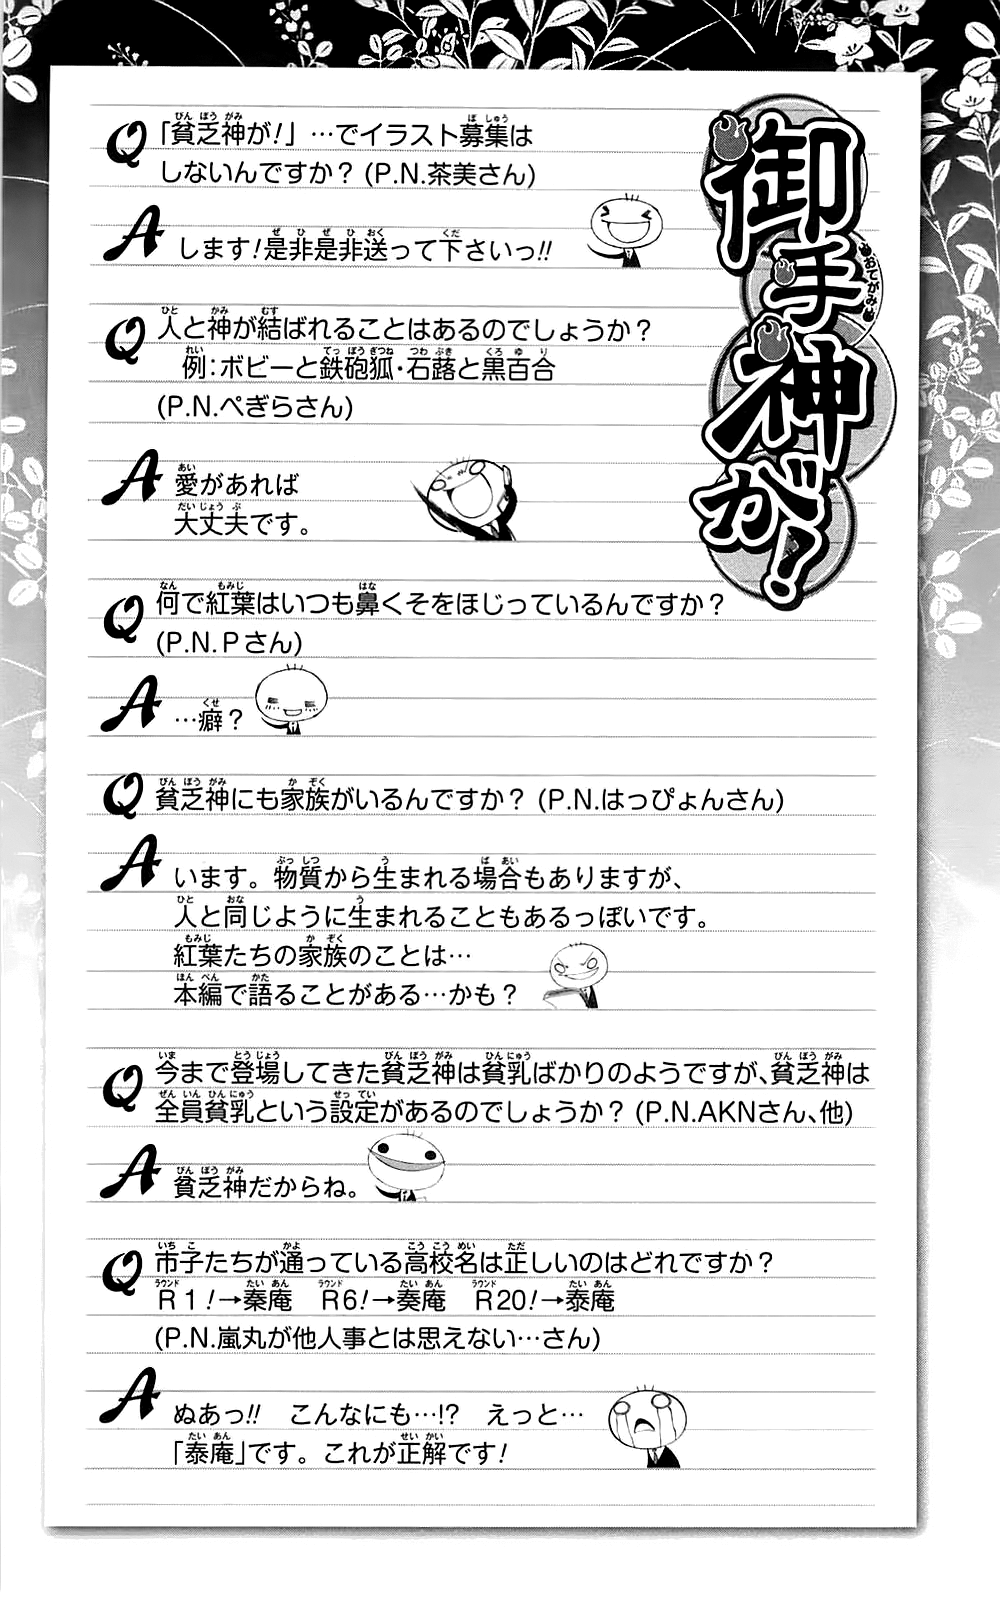 御手神が!
おてがみ
Q 「貧乏神が!」…でイラスト募集は
しないんですか? (P.N.茶美さん)
A します!是非是非送って下さいっ!!
Q 人と神が結ばれることはあるのでしょうか?
例:ボビーと鉄砲狐・石蕗と黒百合
(P.N.ぺぎらさん)
A 愛があれば
大丈夫です。
Q 何で紅葉はいつも鼻くそをほじっているんですか?
(P.N.Pさん)
A …癖?
Q 貧乏神にも家族がいるんですか? (P.N.はっぴょんさん)
A います。物質から生まれる場合もありますが、
人と同じように生まれることもあるっぽいです。
紅葉たちの家族のことは…
本編で語ることがある…かも?
Q 今まで登場してきた貧乏神は貧乳ばかりのようですが、貧乏神は
全員貧乳という設定があるのでしょうか? (P.N.AKNさん、他)
A 貧乏神だからね。
Q 市子たちが通っている高校名は正しいのはどれですか?
R1!→秦庵 R6!→奏庵 R20!→泰庵
(P.N.嵐丸が他人事とは思えない…さん)
A ぬあっ!! こんなにも…!? えっと…
「泰庵」です。これが正解です!